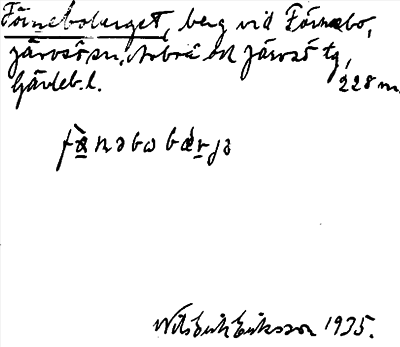 Förneboberget, berg vid Förnebo,
Järvsö sn, Arbrå och Järvsö tg,
Gävleb. l. 228 m.
fä̀nəbobærjə
Nils Erik Eriksson 1935.